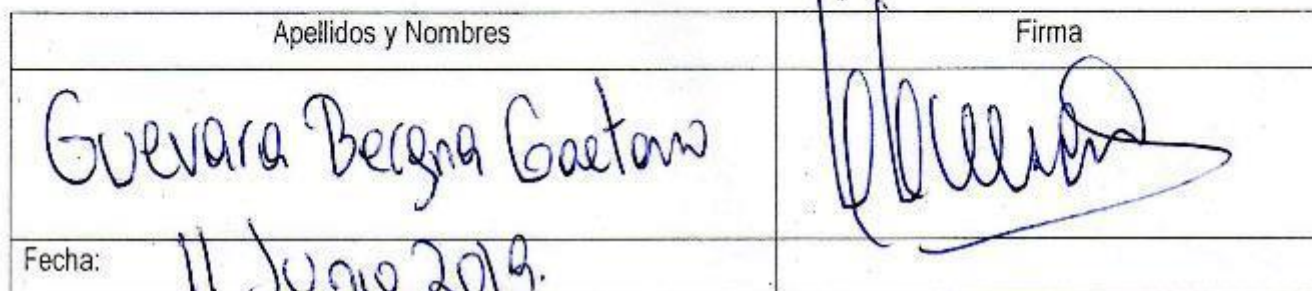 Apellidos y Nombres
Firma
Guevara Bergna Gaetano
Fecha: 11 Junio 2019.